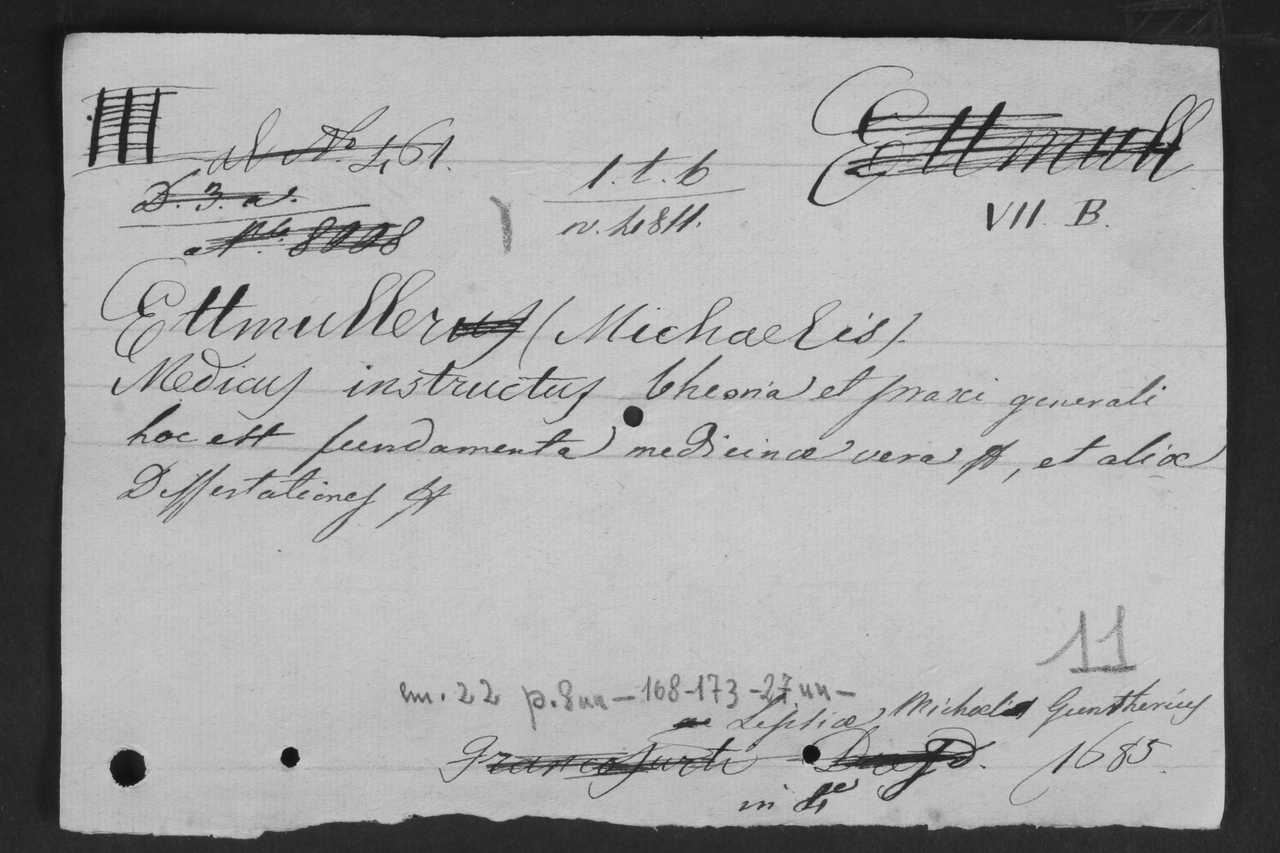 III
al Nº 461.
D. 3. a.
Nº 8008
1. t. b
n. 4811.
Ettmull
VII. B.
Ettmullerus (Michaelis).
Medicus instructus theoria et praxi generali
hoc est fundamenta medicinæ vera &, et aliæ
Dissertationes &
cm. 22 p. 8 nn — 168-173 - 27 nn —
11
Lipsiæ Michaelis Guntherius
Francofurti Dresd. 1685.
in 4º